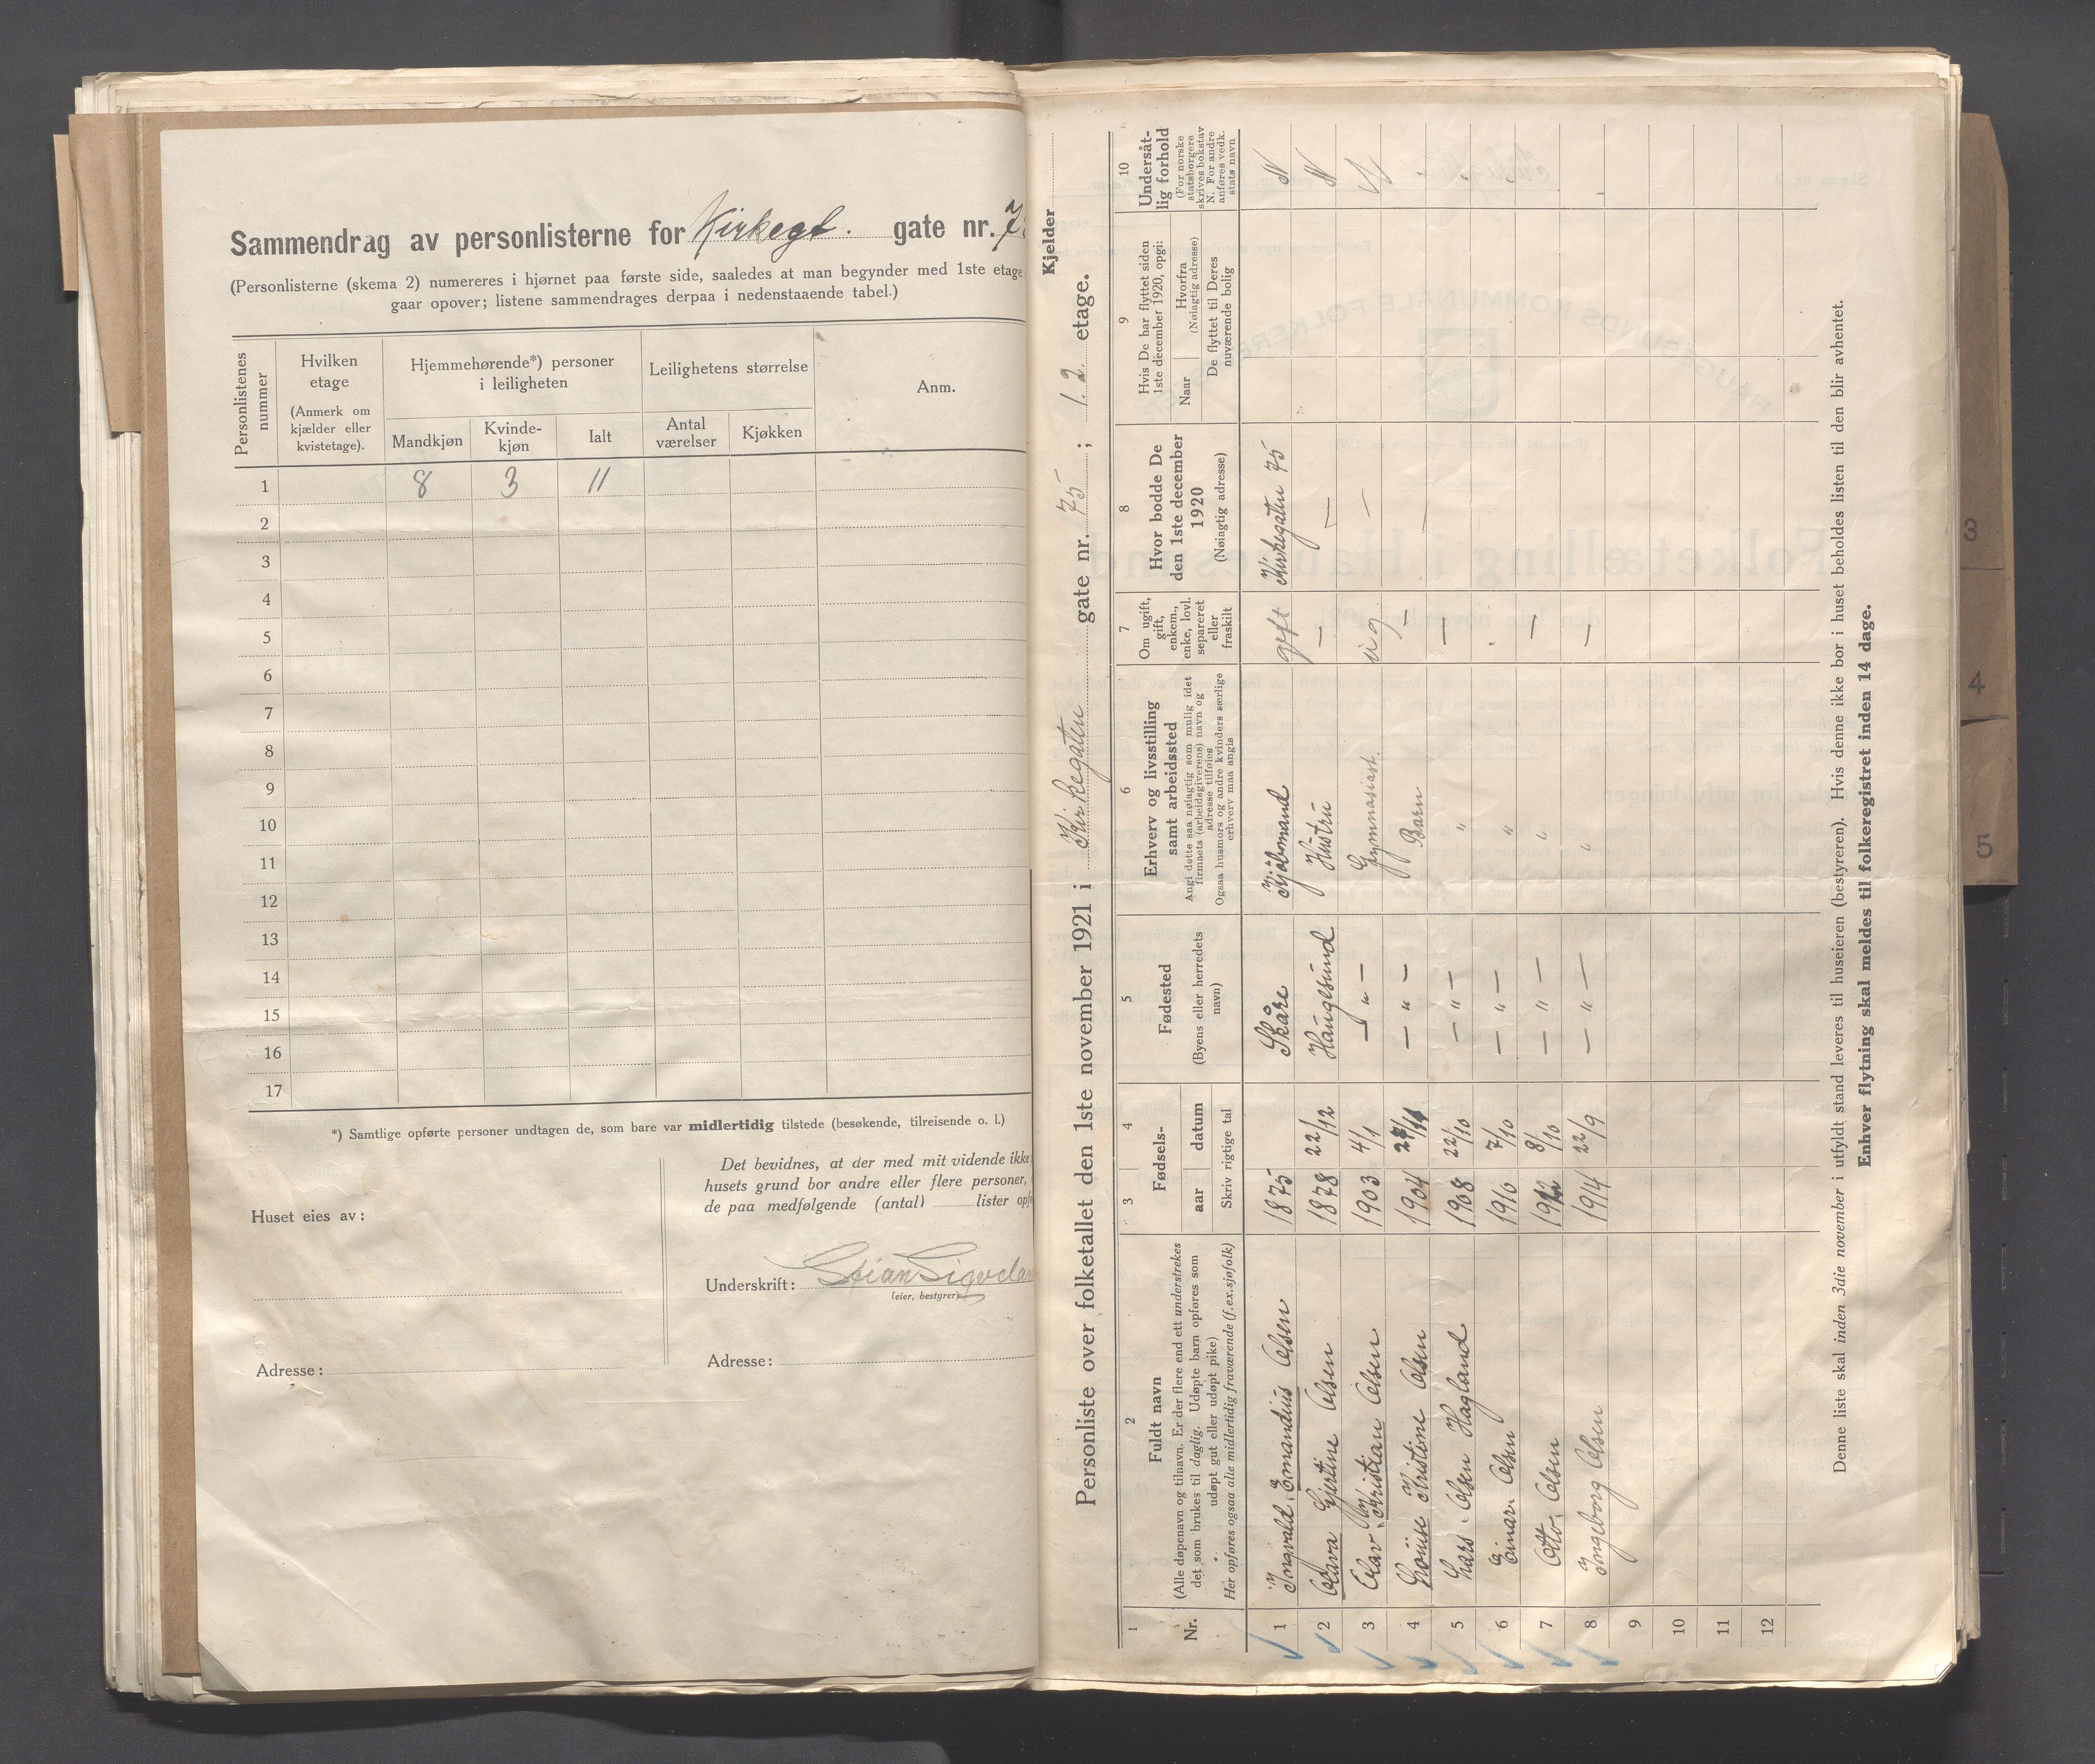 Sammendrag av personlisterne for Kirkegt. gate nr. 7
(Personlisterne (skema 2) numereres i hjørnet paa første side, saaledes at man begynder med 1ste etage
gaar opover; listene sammendrages derpaa i nedenstaaende tabel.)
Personlistenes nummer
Hvilken etage
(Anmerk om kjælder eller kvistetage).
Hjemmehørende*) personer i leiligheten
Mandkjøn
Kvinde-kjøn
Ialt
Leilighetens størrelse
Antal værelser
Kjøkken
Anm.
1 8 3 11
2
3
4
5
6
7
8
9
10
11
12
13
14
15
16
17
*) Samtlige opførte personer undtagen de, som bare var midlertidig tilstede (besøkende, tilreisende o. l.)
Huset eies av:
Adresse:
Det bevidnes, at der med mit vidende ikke
husets grund bor andre eller flere personer,
de paa medfølgende (antal) lister
Underskrift: Stian
(eier, bestyrer)
Adresse:
Kjelder
Personliste over folketallet den 1ste november 1921 i Kirkegaten gate nr. 75 ; 1. 2 etage.
1
Nr.
2
Fuldt navn
(Alle døpenavn og tilnavn. Er der flere end ett understrekes
det som brukes til daglig. Udøpte barn opføres som
udøpt gut eller udøpt pike)
Her opføres ogsaa alle midlertidig fraværende (f.ex. sjøfolk)
3 4
Fødsels-
aar datum
Skriv rigtige tal
5
Fødested
(Byens eller herredets navn)
6
Erhverv og livsstilling
samt arbeidssted
Angi dette saa nøiagtig som mulig idet
firmaets (arbeidsgiverens) navn og
adresse tilføies
Ogsaa husmors og andre kvinders særlige
erhverv maa angis
7
Om ugift,
gift,
enkem.,
enke, lovl.
separeret
eller
fraskilt
8
Hvor bodde De
den 1ste december
1920
(Nøiagtig adresse)
9
Hvis De har flyttet siden
1ste december 1920, opgi:
Naar
Hvorfra
(Nøiagtig adresse)
De flyttet til Deres
nuværende bolig
10
Undersåt-
lig forhold
(For norske
statsborgere
skrives bokstav
N. For andre
anføres vedk.
stats navn
1 Ingvald Emandius Olsen 1875 Skåre Kjøbmand gift Kirkegaten 75 N
2 Olava Gjertine Olsen 1878 22/12 Haugesund Hustru — — N
3 Olav Kristian Olsen 1903 4/1 — " — Gymnasiast. ug — N
4 Louise Kristine Olsen 1904 — " — Barn — —
5 Lars Olsen Hagland 1908 22/10 — " — " —
6 Einar Olsen 1910 7/10 — " — "
7 Otto Olsen 8/10 — " — " —
8 Ingeborg Olsen 1914 22/9 — " — " —
9
10
11
12
Denne liste skal inden 3die november i utfyldt stand leveres til huseieren (bestyreren). Hvis denne ikke bor i huset beholdes listen til den blir avhentet.
Enhver flytning skal meldes til folkeregistret inden 14 dage.
3
4
5